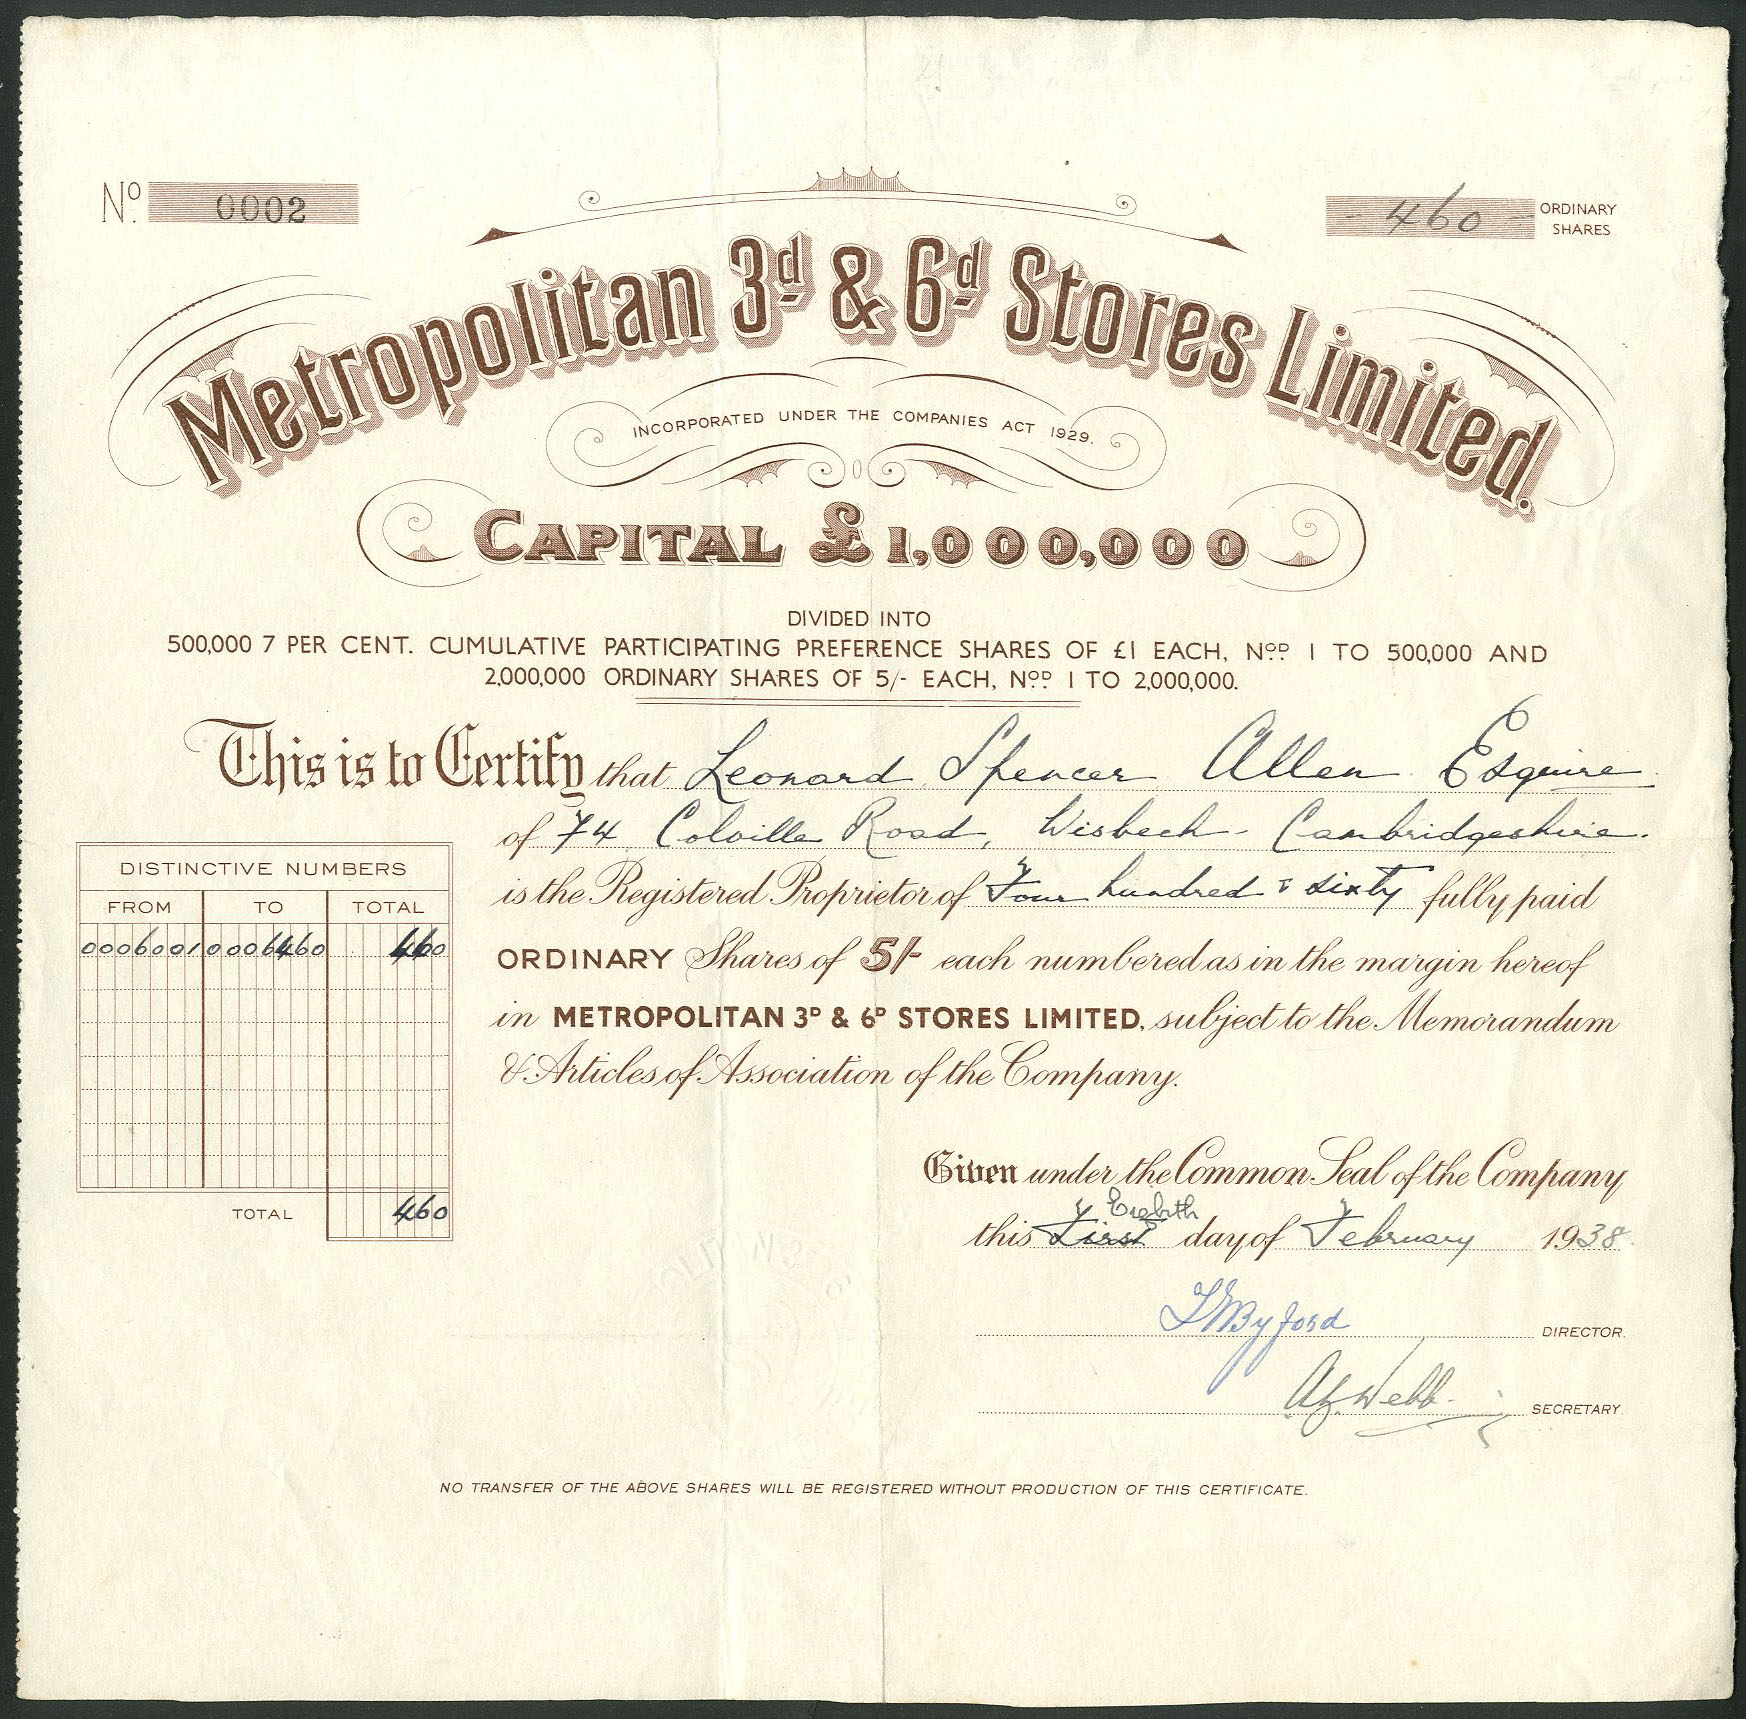 Nº 0002
- 460 - ORDINARY SHARES
Metropolitan 3d & 6d Stores Limited.
INCORPORATED UNDER THE COMPANIES ACT 1929.
CAPITAL £1,000,000
DIVIDED INTO
500,000 7 PER CENT. CUMULATIVE PARTICIPATING PREFERENCE SHARES OF £1 EACH, Nos. 1 TO 500,000 AND
2,000,000 ORDINARY SHARES OF 5/- EACH, Nos. 1 TO 2,000,000.
This is to Certify that Leonard Spencer Allen Esquire
of 74 Colville Road, Wisbech - Cambridgeshire.
is the Registered Proprietor of Four hundred & sixty fully paid
ORDINARY Shares of 5/- each numbered as in the margin hereof
in METROPOLITAN 3D & 6D STORES LIMITED, subject to the Memorandum
& Articles of Association of the Company.
DISTINCTIVE NUMBERS
FROM TO TOTAL
0006001 0006460 460
TOTAL 460
Given under the Common Seal of the Company
Eighth
this First day of February 1938
DIRECTOR.
A Webb. SECRETARY.
NO TRANSFER OF THE ABOVE SHARES WILL BE REGISTERED WITHOUT PRODUCTION OF THIS CERTIFICATE.